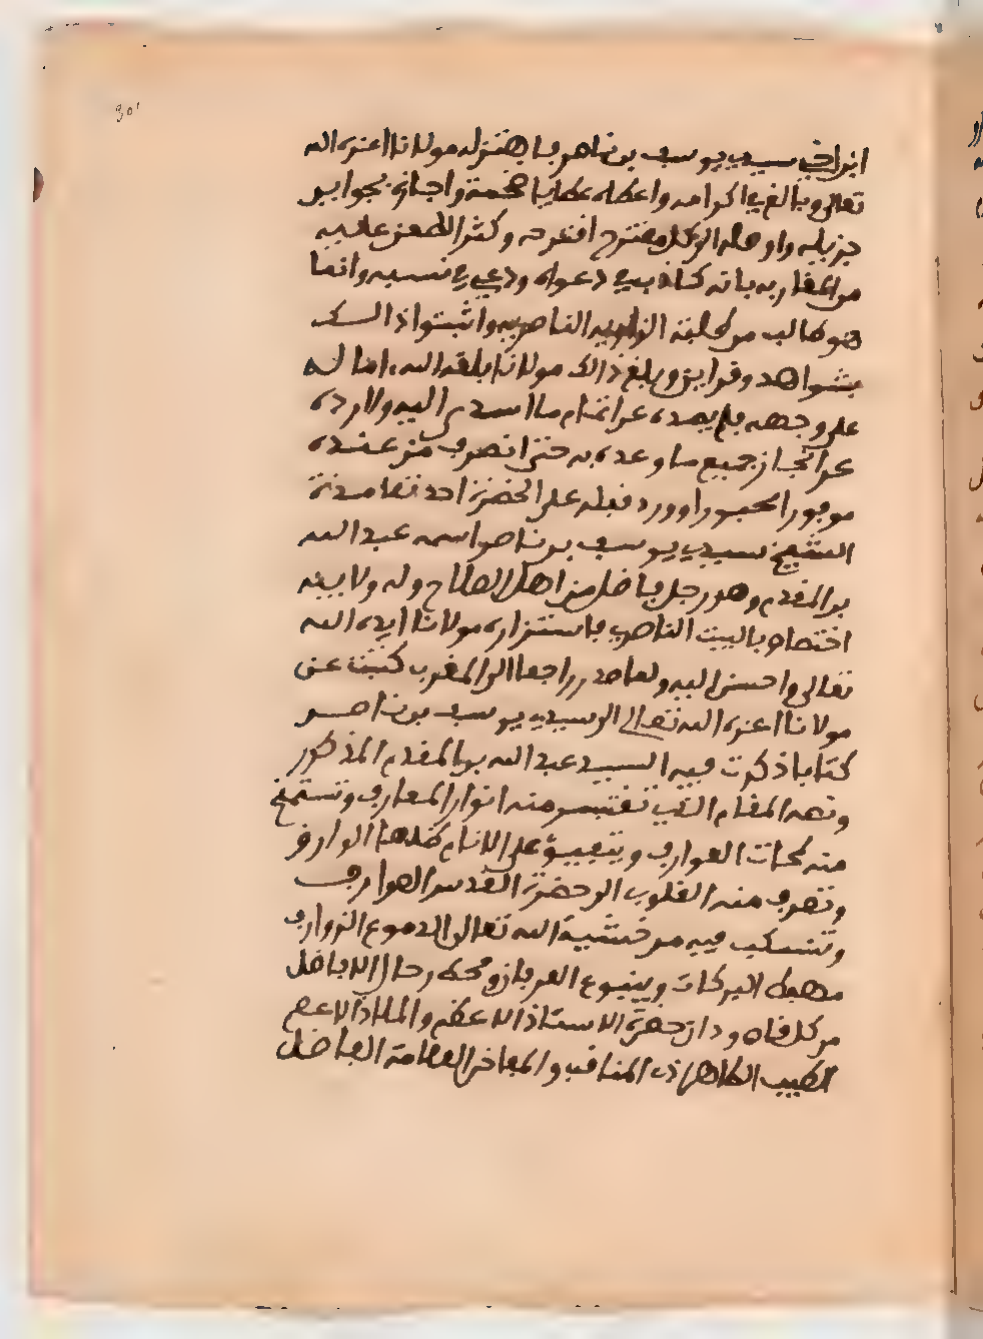 301
ابن اخي سيدي يوسف بن ناصر فاهتز له مولانا اعزه الله
تعالى وبالغ في اكرامه واعطاه عطايا ضخمة واجازه بجوايز
جزيله واوصله الى كل مقترح اقترحه وكثر الطعن عليه
من المغاربه بانه كاذب في دعواه ودعي في نسبه وانما
هو طالب من طلبة الزاويه الناصريه واثبتوا ذالك
بشواهد وقراين وبلغ ذالك مولانا ابقه الله
على وجهه فلم يصده عن اتمام ما اسدى اليه ولا رده
عن انجاز جميع ما وعده به حتى انصرف من عنده
موفورا محبورا وورد قبله على الحضرة احد تلامذة
الشيخ سيدي يوسف بن ناصر اسمه عبد الله
بن المقدم وهو رجل فاضل من اهل الصلاح وله ولابيه
اختصاص بالبيت الناصري فاستزاره مولانا ايده الله
تعالى واحسن اليه ولما صدر راجعا الى المغرب كتبت عن
مولانا اعزه الله تعالى الى سيدي يوسف بن ناصر
كتابا ذكرت فيه السيد عبد الله بن المقدم المذكور
ونصه المقام الذي تقتبس منه انوار المعارف وتستمنح
منه لمحات العوارف ويتفيؤ على الانام ظلها الوارف
وتصرف منه القلوب الى حضرة القدس الصوارف
وتنسكب فيه من خشية الله تعالى الدموع الذوارف
مهبط البركات وينبوع العرفان ومحط رحال الافاضل
من كل قاص ودان حضرة الاستاذ الاعظم والملاذ الاعصم
الطيب الطاهر ذي المناقب والمفاخر العلامة الفاضل